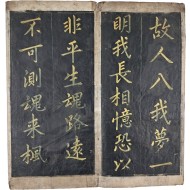 故人入我夢一
明我長相憶恐以
非平生魂路遠
不可測魂来楓